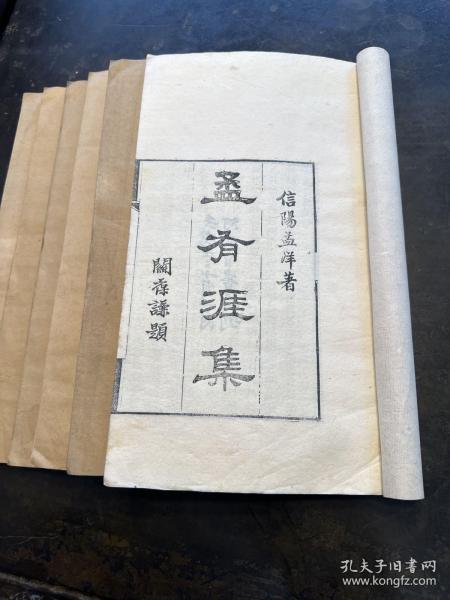 信陽孟洋著
孟有涯集
關葆謙題
孔夫子旧书网
www.kongfz.com